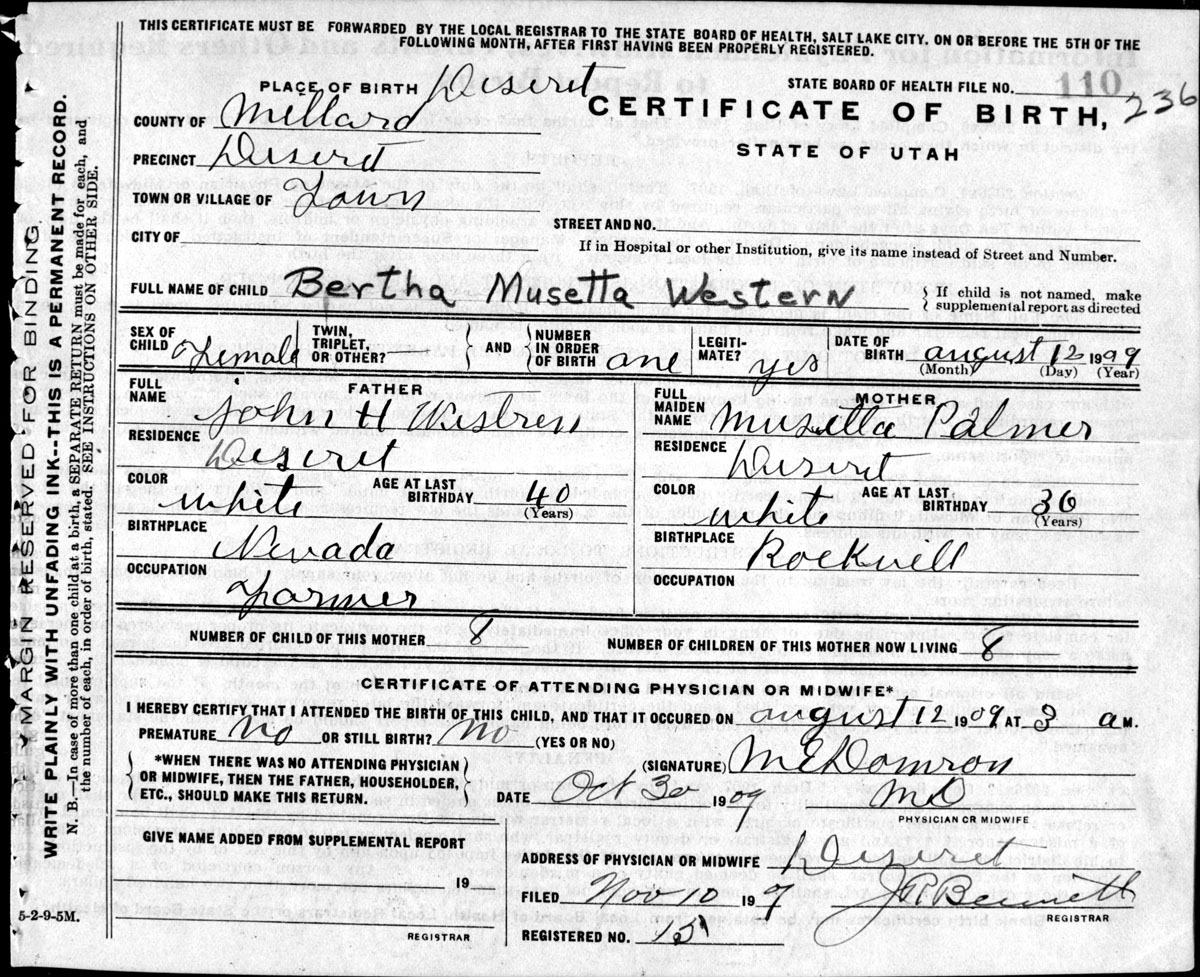 THIS CERTIFICATE MUST BE FORWARDED BY THE LOCAL REGISTRAR TO THE STATE BOARD OF HEALTH, SALT LAKE CITY, ON OR BEFORE THE 5TH OF THE
FOLLOWING MONTH, AFTER FIRST HAVING BEEN PROPERLY REGISTERED.
PLACE OF BIRTH Deseret
STATE BOARD OF HEALTH FILE NO. 110
236
COUNTY OF Millard
CERTIFICATE OF BIRTH,
PRECINCT Deseret
STATE OF UTAH
TOWN OR VILLAGE OF Town
STREET AND NO.
CITY OF
If in Hospital or other Institution, give its name instead of Street and Number.
FULL NAME OF CHILD Bertha Musetta Western
If child is not named, make
supplemental report as directed
SEX OF CHILD Female TWIN, TRIPLET, OR OTHER? AND NUMBER IN ORDER OF BIRTH one LEGITI-MATE? yes DATE OF BIRTH august 12 1909
(Month) (Day) (Year)
FATHER
FULL NAME John H Westren
RESIDENCE Deseret
COLOR white AGE AT LAST BIRTHDAY 40
(Years)
BIRTHPLACE Nevada
OCCUPATION Farmer
MOTHER
FULL MAIDEN NAME Musetta Palmer
RESIDENCE Deseret
COLOR white AGE AT LAST BIRTHDAY 36
(Years)
BIRTHPLACE Rockwell
OCCUPATION
NUMBER OF CHILD OF THIS MOTHER 8
NUMBER OF CHILDREN OF THIS MOTHER NOW LIVING 8
CERTIFICATE OF ATTENDING PHYSICIAN OR MIDWIFE*
I HEREBY CERTIFY THAT I ATTENDED THE BIRTH OF THIS CHILD, AND THAT IT OCCURED ON august 12 1909 AT 3 a M.
PREMATURE No OR STILL BIRTH? No (YES OR NO)
*WHEN THERE WAS NO ATTENDING PHYSICIAN
OR MIDWIFE, THEN THE FATHER, HOUSEHOLDER,
ETC., SHOULD MAKE THIS RETURN.
(SIGNATURE)
DATE Oct 30 1909 MD
PHYSICIAN OR MIDWIFE
GIVE NAME ADDED FROM SUPPLEMENTAL REPORT
19
REGISTRAR
ADDRESS OF PHYSICIAN OR MIDWIFE Deseret
FILED Nov 10 19
J A Bennett
REGISTRAR
REGISTERED NO.
5-2-9-5M.
MARGIN RESERVED FOR BINDING
WRITE PLAINLY WITH UNFADING INK--THIS IS A PERMANENT RECORD.
N. B.—In case of more than one child at a birth, a SEPARATE RETURN must be made for each, and
the number of each, in order of birth, stated. SEE INSTRUCTIONS ON OTHER SIDE.